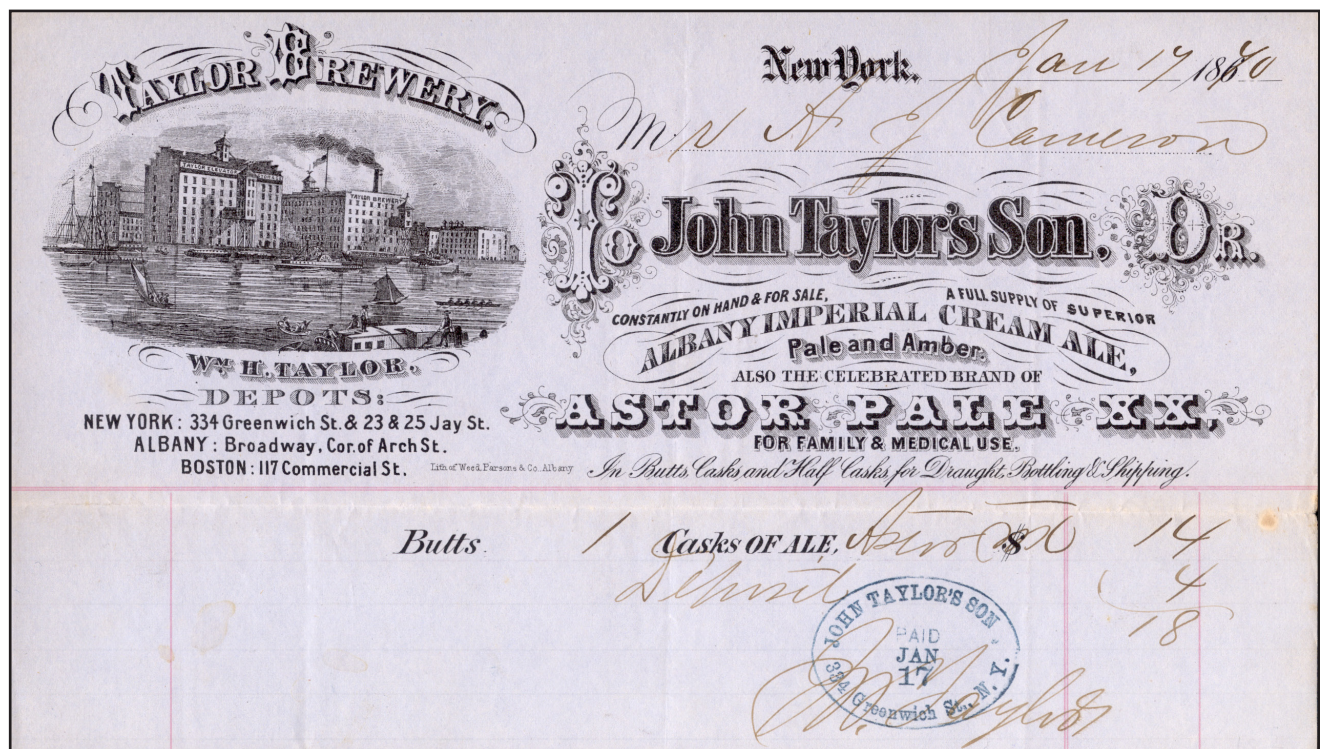 TAYLOR BREWERY.
TAYLOR ELEVATOR
TAYLOR BREWERY
Wm H. TAYLOR.
DEPOTS:
NEW YORK: 334 Greenwich St. & 23 & 25 Jay St.
ALBANY: Broadway, Cor. of Arch St.
BOSTON: 117 Commercial St.
Lith of Weed, Parsons & Co. Albany
New York, Jan 17 1870
Mr A J Cameron
To John Taylor's Son, Dr.
CONSTANTLY ON HAND & FOR SALE, A FULL SUPPLY OF SUPERIOR
ALBANY IMPERIAL CREAM ALE,
Pale and Amber.
ALSO THE CELEBRATED BRAND OF
ASTOR PALE XX,
FOR FAMILY & MEDICAL USE.
In Butts, Casks, and Half Casks, for Draught, Bottling & Shipping.
Butts 1 Casks OF ALE, $ 14
Deposit 4
18
JOHN TAYLOR'S SON
PAID
JAN
17
334 Greenwich St., N. Y.
Taylor